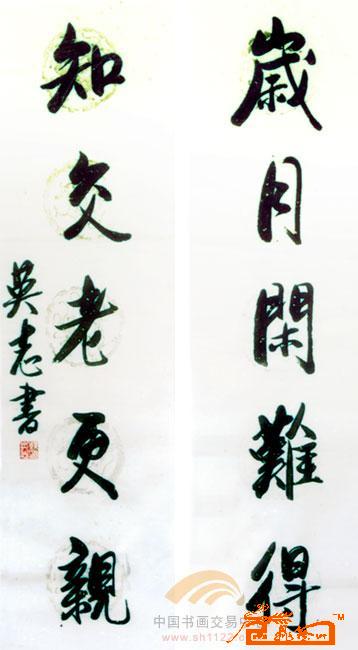 歲月閑難得
知交老更親
英志書
中国书画交易
www.sh1122.com
TM